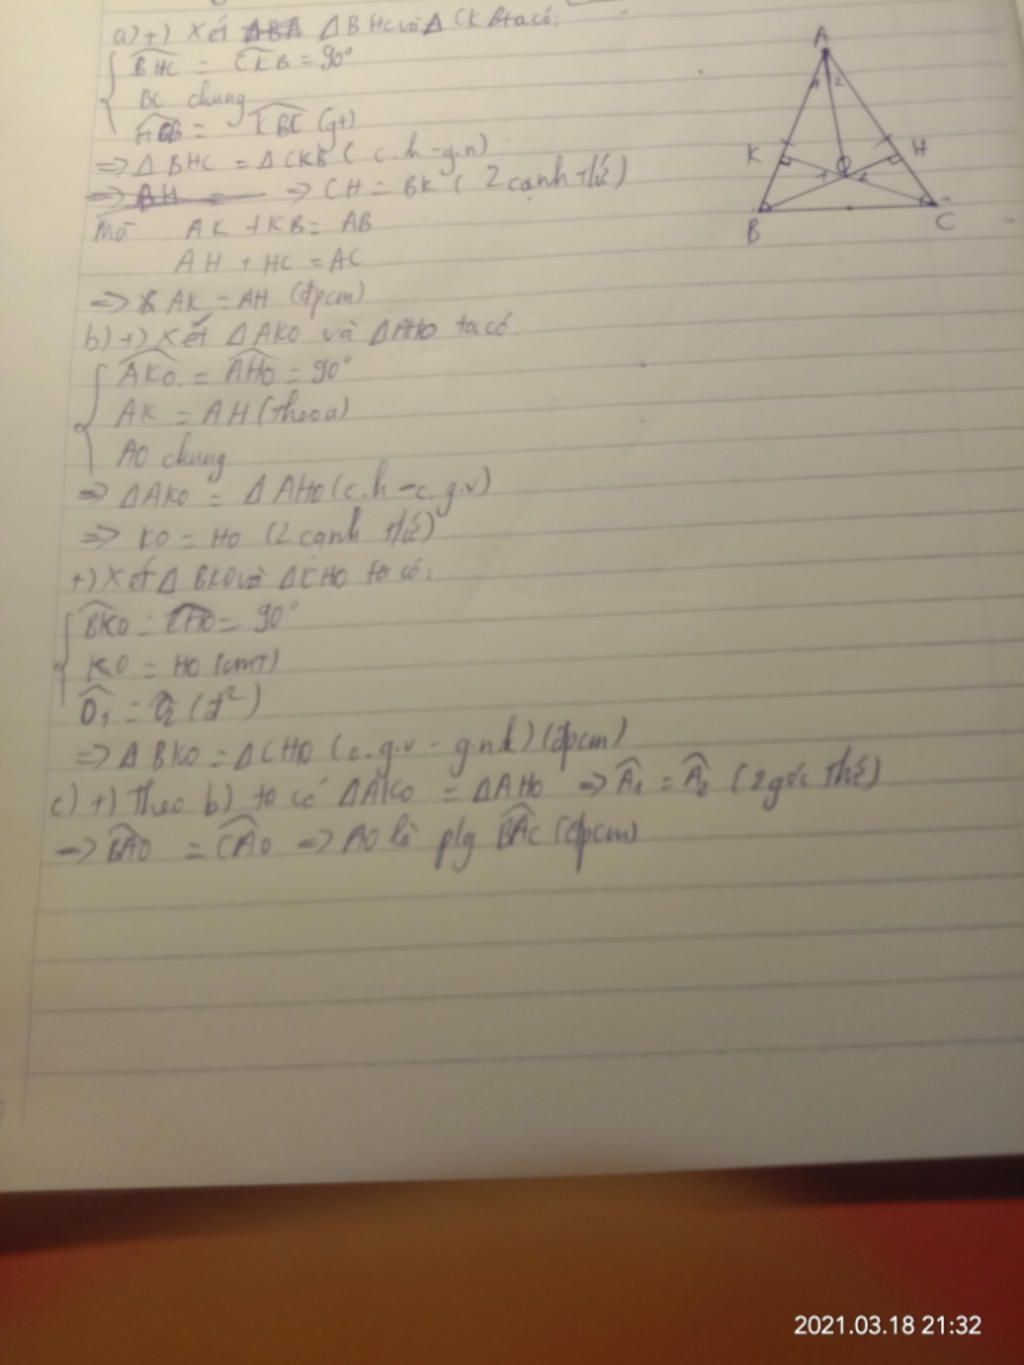 a) +) Xét ΔBHC và ΔCKB ta có:
BHC = CKB = 90°
BC chung
HCB = KBC (gt)
=> ΔBHC = ΔCKB (c.h - g.n)
=> CH = BK (2 cạnh t/ứ)
Mà AK + KB = AB
AH + HC = AC
=> AK = AH (đpcm)
b) +) Xét ΔAKO và ΔAHO ta có:
AKO = AHO = 90°
AK = AH (theo a)
AO chung
=> ΔAKO = ΔAHO (c.h - c.g.v)
=> KO = HO (2 cạnh t/ứ)
+) Xét Δ BKO và ΔCHO ta có:
BKO = CHO = 90°
KO = HO (cmt)
O1 = O2 (đ²)
=> Δ BKO = ΔCHO (c.g.v - g.nk) (đpcm)
c) +) Theo b) ta có ΔAKO = ΔAHO => A1 = A2 (2 góc t/ứ)
=> BAO = CAO => AO là p/g BAC (đpcm)
A
1 2
K
H
O
1 2
B
C
2021.03.18 21:32